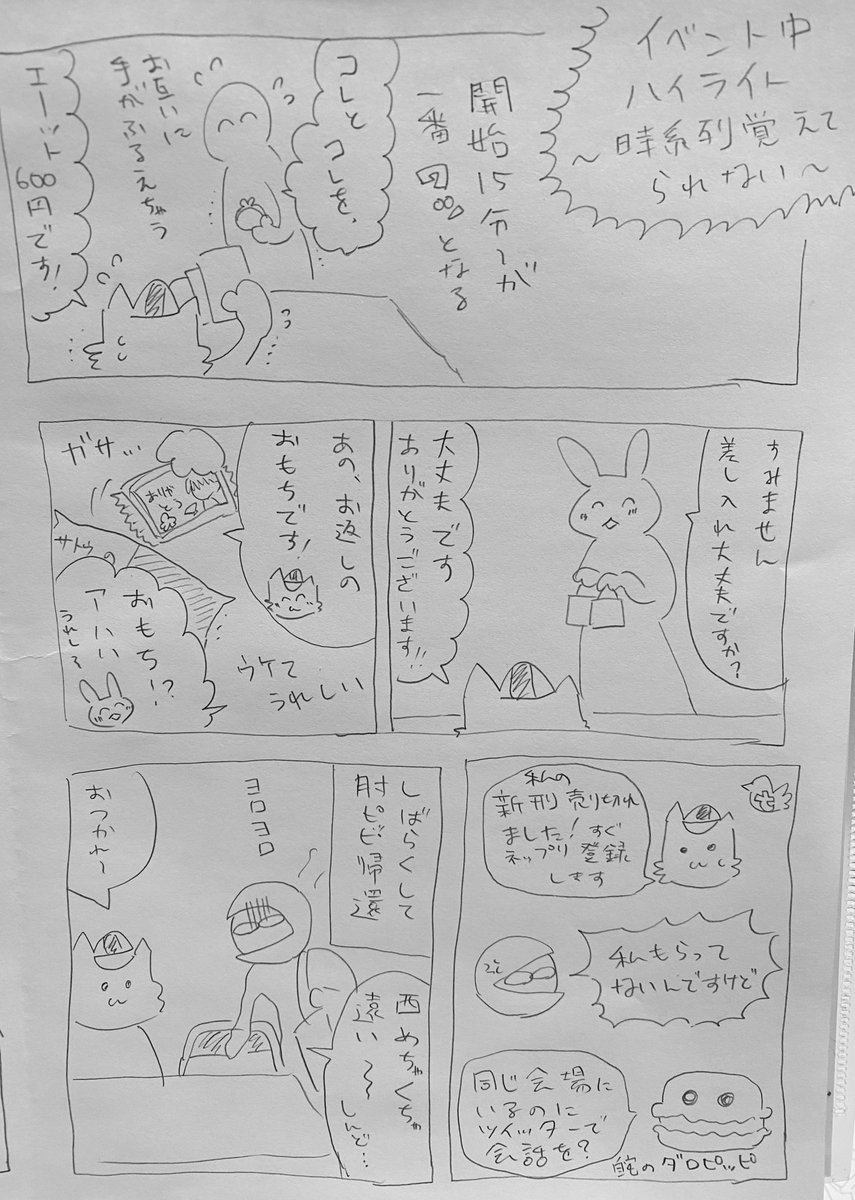 イベント中
ハイライト
〜時系列覚えて
られない〜
開始15分〜が
一番
となる
コレと
コレを、
お互いに
手がふるえちゃう
エーット
600
円です!
すみません
差し入れ大丈夫ですか?
大丈夫です
ありがとうございます!!
あの、お返しの
おもちです!
ガサ…
ありがとう
サトウの
おもち!?
アハハ
うれしい
ウケて
うれしい
私の
新刊売り切れ
ました!すぐ
ネップリ登録
します
私もらって
ないんですけど
同じ会場に
いるのに
ツイッターで
会話を?
のダロピッピ
しばらくして
肘ピビ帰還
ヨロヨロ
西めちゃくちゃ
遠い〜
しんど…
おつかれ〜